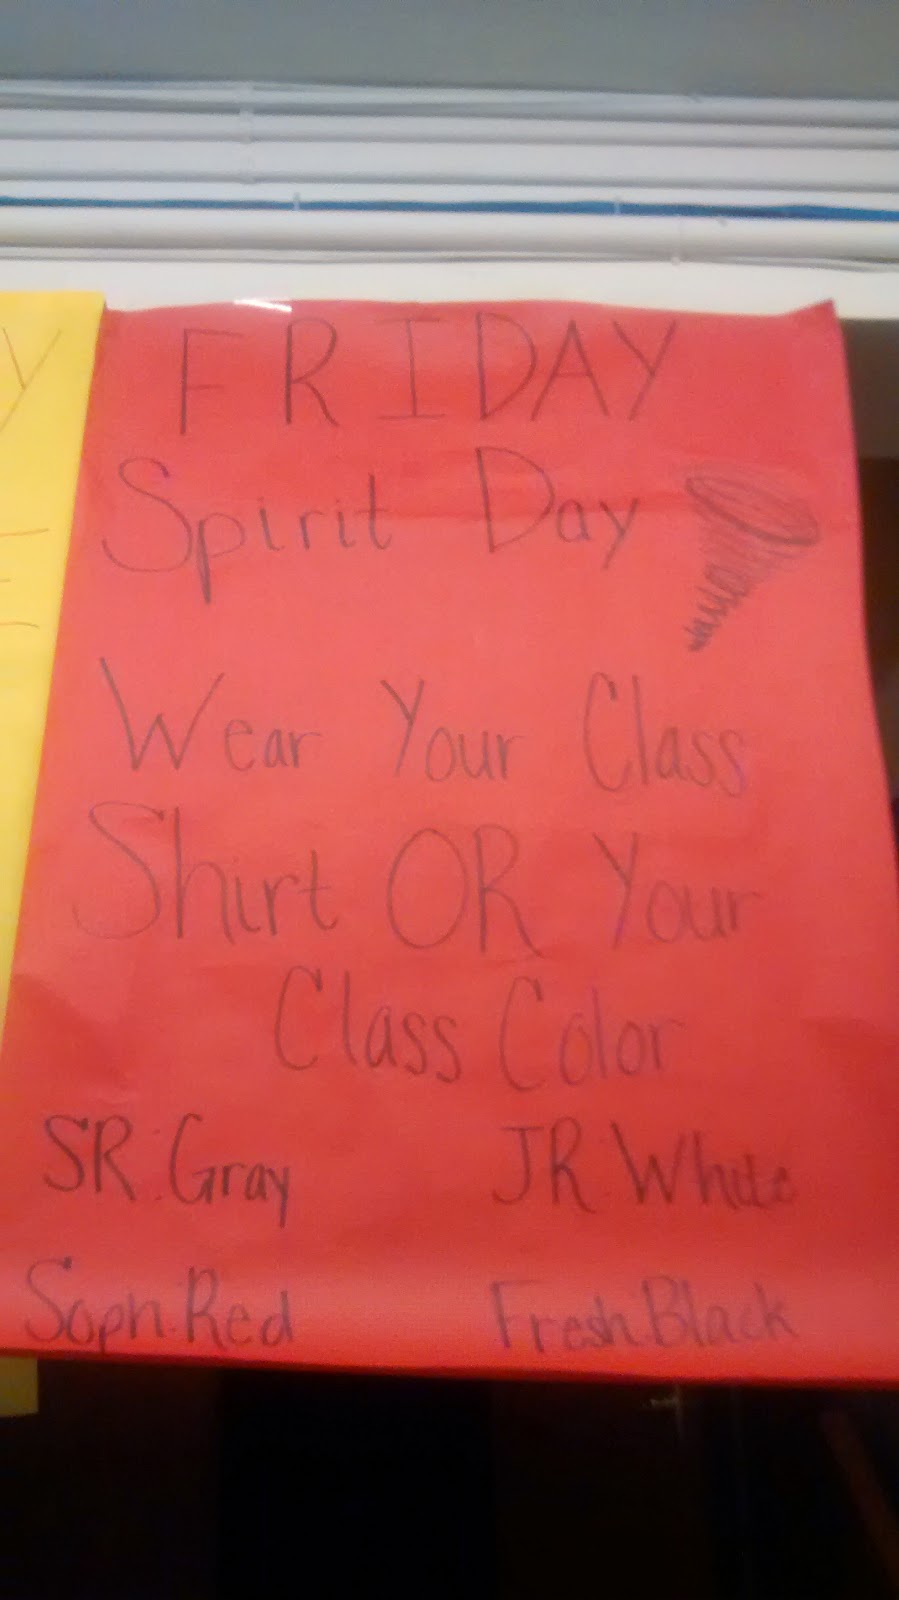 FRIDAY
Spirit Day
Wear Your Class
Shirt OR Your
Class Color
SR: Gray JR: White
Soph: Red Fresh: Black